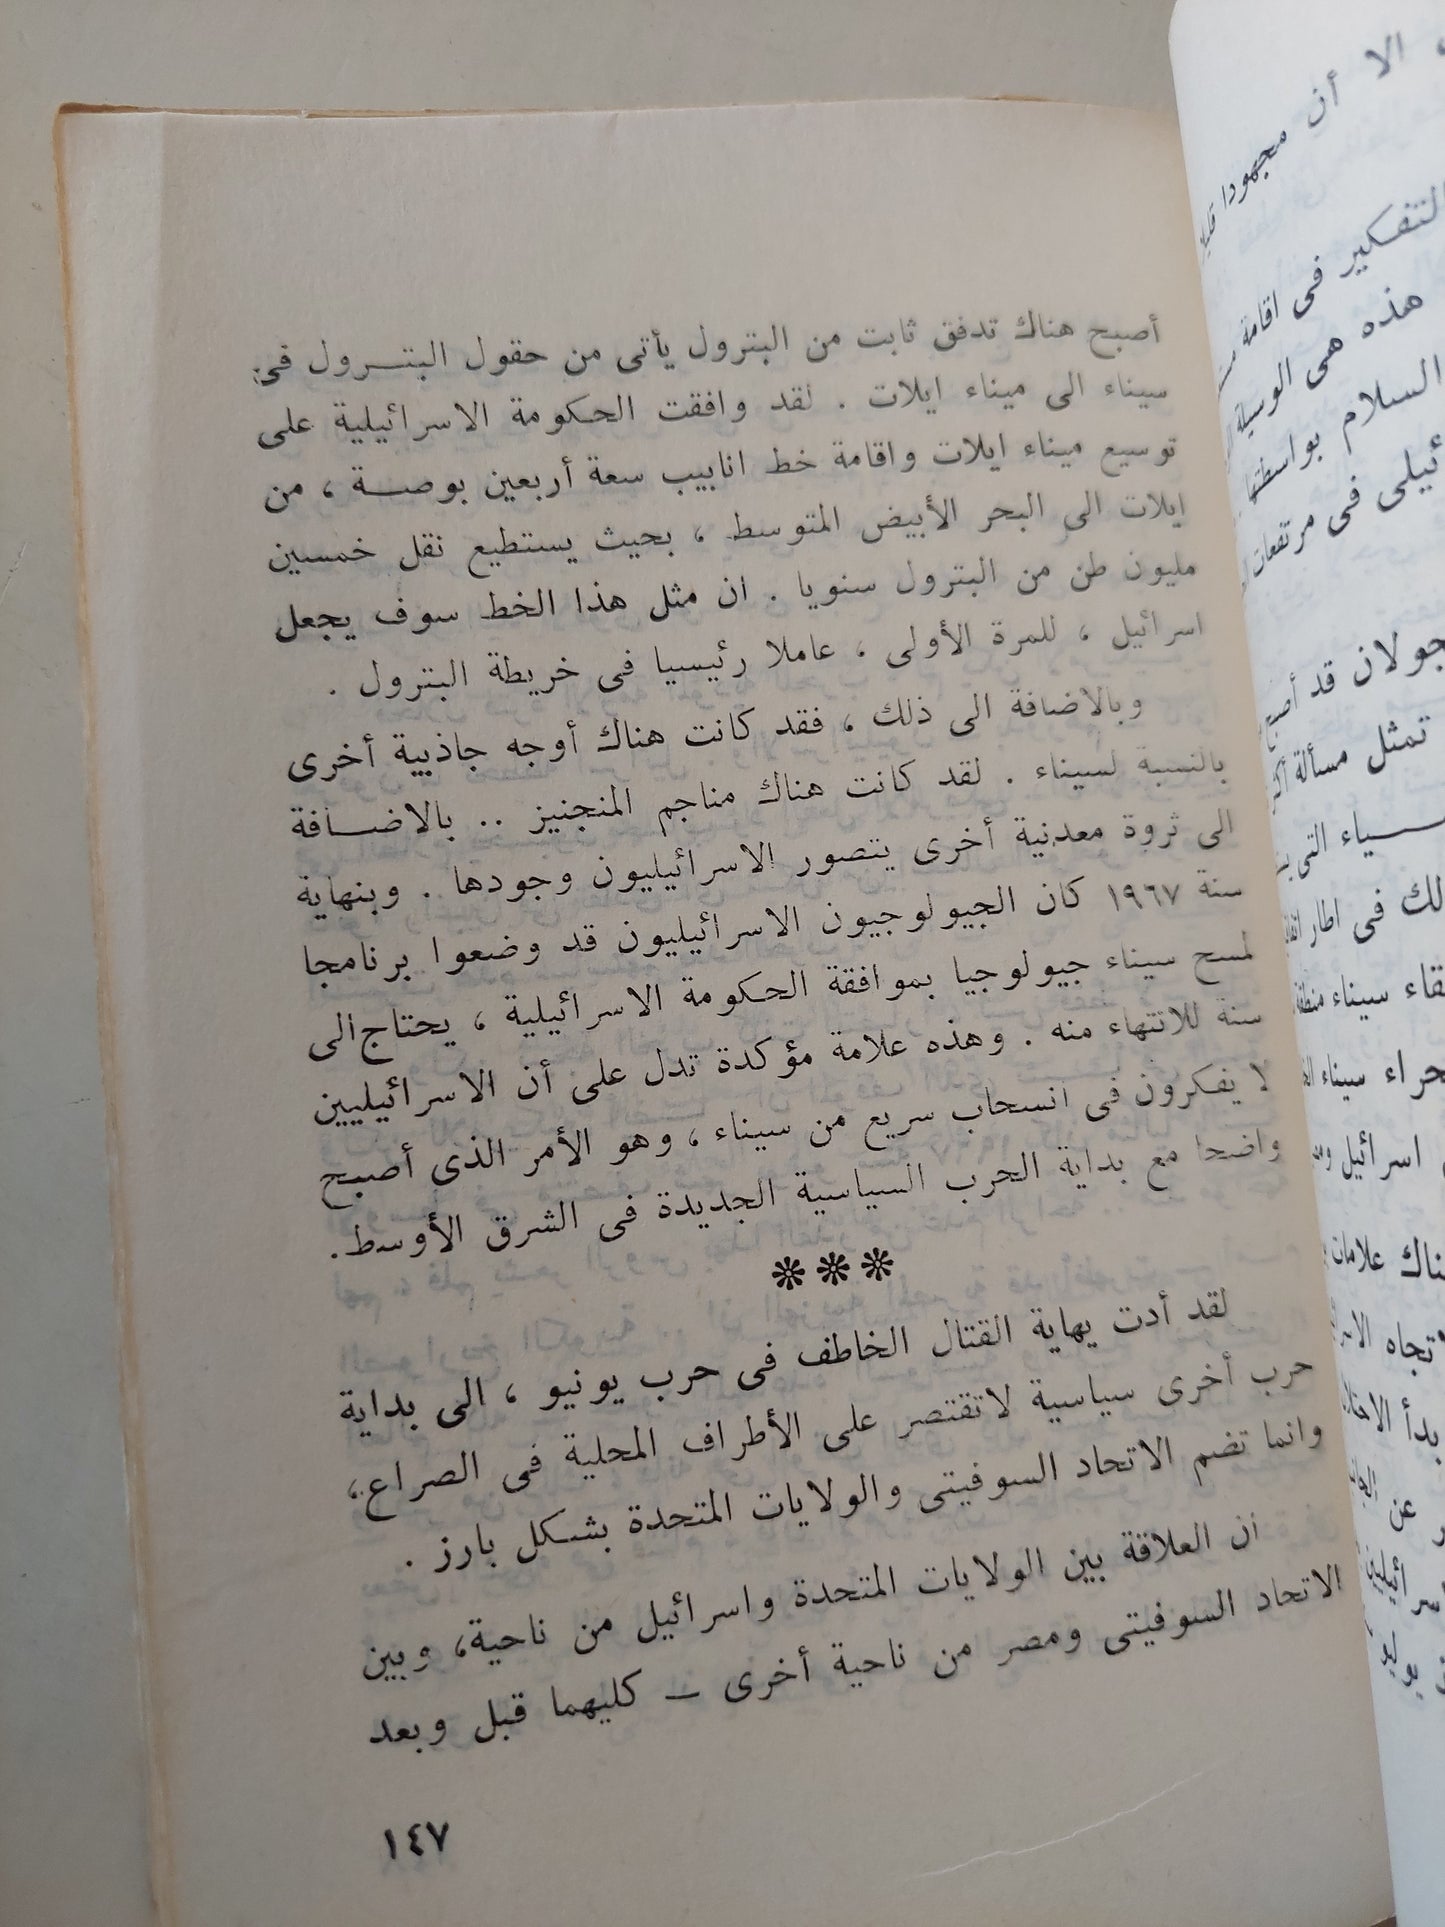 أصبح هناك تدفق ثابت من البترول يأتى من حقول البتـــرول فى
سيناء الى ميناء ايلات . لقد وافقت الحكومة الاسرائيلية على
توسيع ميناء ايلات واقامة خط انابيب سعة أربعين بوصـــة ، من
ايلات الى البحر الأبيض المتوسط ، بحيث يستطيع نقل خمسين
مليون طن من البترول سنويا . ان مثل هذا الخط سوف يجعل
اسرائيل ، للمرة الأولى ، عاملا رئيسيا فى خريطة البترول .
وبالاضافة الى ذلك ، فقد كانت هناك أوجه جاذبية أخرى
بالنسبة لسيناء . لقد كانت هناك مناجم المنجنيز .. بالاضــافة
الى ثروة معدنية أخرى يتصور الاسرائيليون وجودها . وبنهاية
سنة ١٩٦٧ كان الجيولوجيون الاسرائيليون قد وضعوا برنامجا
لمسح سيناء جيولوجيا بموافقة الحكومة الاسرائيلية ، يحتاج الى
سنة للانتهاء منه . وهذه علامة مؤكدة تدل على أن الاسرائيليين
لا يفكرون فى انسحاب سريع من سيناء ، وهو الأمر الذى أصبح
واضحا مع بداية الحرب السياسية الجديدة فى الشرق الأوسط.
❊❊❊
لقد أدت يهاية القتال الخاطف فى حرب يونيو ، الى بداية
حرب أخرى سياسية لاتقتصر على الأطراف المحلية فى الصراع،
وانما تضم الاتحاد السوفيتى والولايات المتحدة بشكل بارز .
ان العلاقة بين الولايات المتحدة واسرائيل من ناحية، وبين
الاتحاد السوفيتى ومصر من ناحية أخرى — كليهما قبل وبعد
١٤٧
الا أن مجهودا
التفكير فى اقامة
هذه هى الوسيلة
السلام بواسطتها
فى مرتفعات
قد أصبح
تمثل مسألة
التى
فى اطار
سيناء
سيناء
اسرائيل
علامات
بدأ
عن